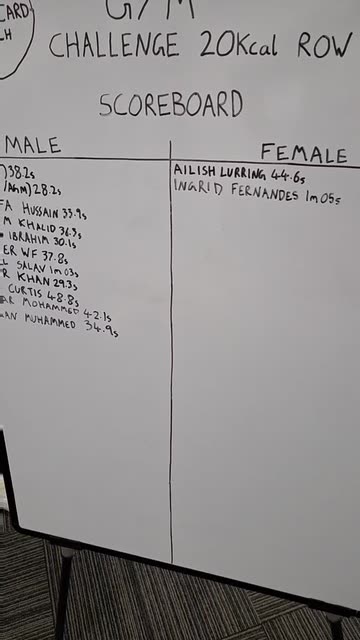 CARD
GYM
CHALLENGE 20Kcal ROW
SCOREBOARD
MALE
FEMALE
) 38.2s
/AGM) 28.2s
FA HUSSAIN 33.9s
M KHALID 36.3s
IBRAHIM 30.1s
ER WF 37.8s
SALAV 1m 03s
R KHAN 29.3s
CURTIS 48.8s
AR MOHAMMED 42.1s
AN MUHAMMED 34.9s
AILISH LURRING 44.6s
INGRID FERNANDES 1m 05s